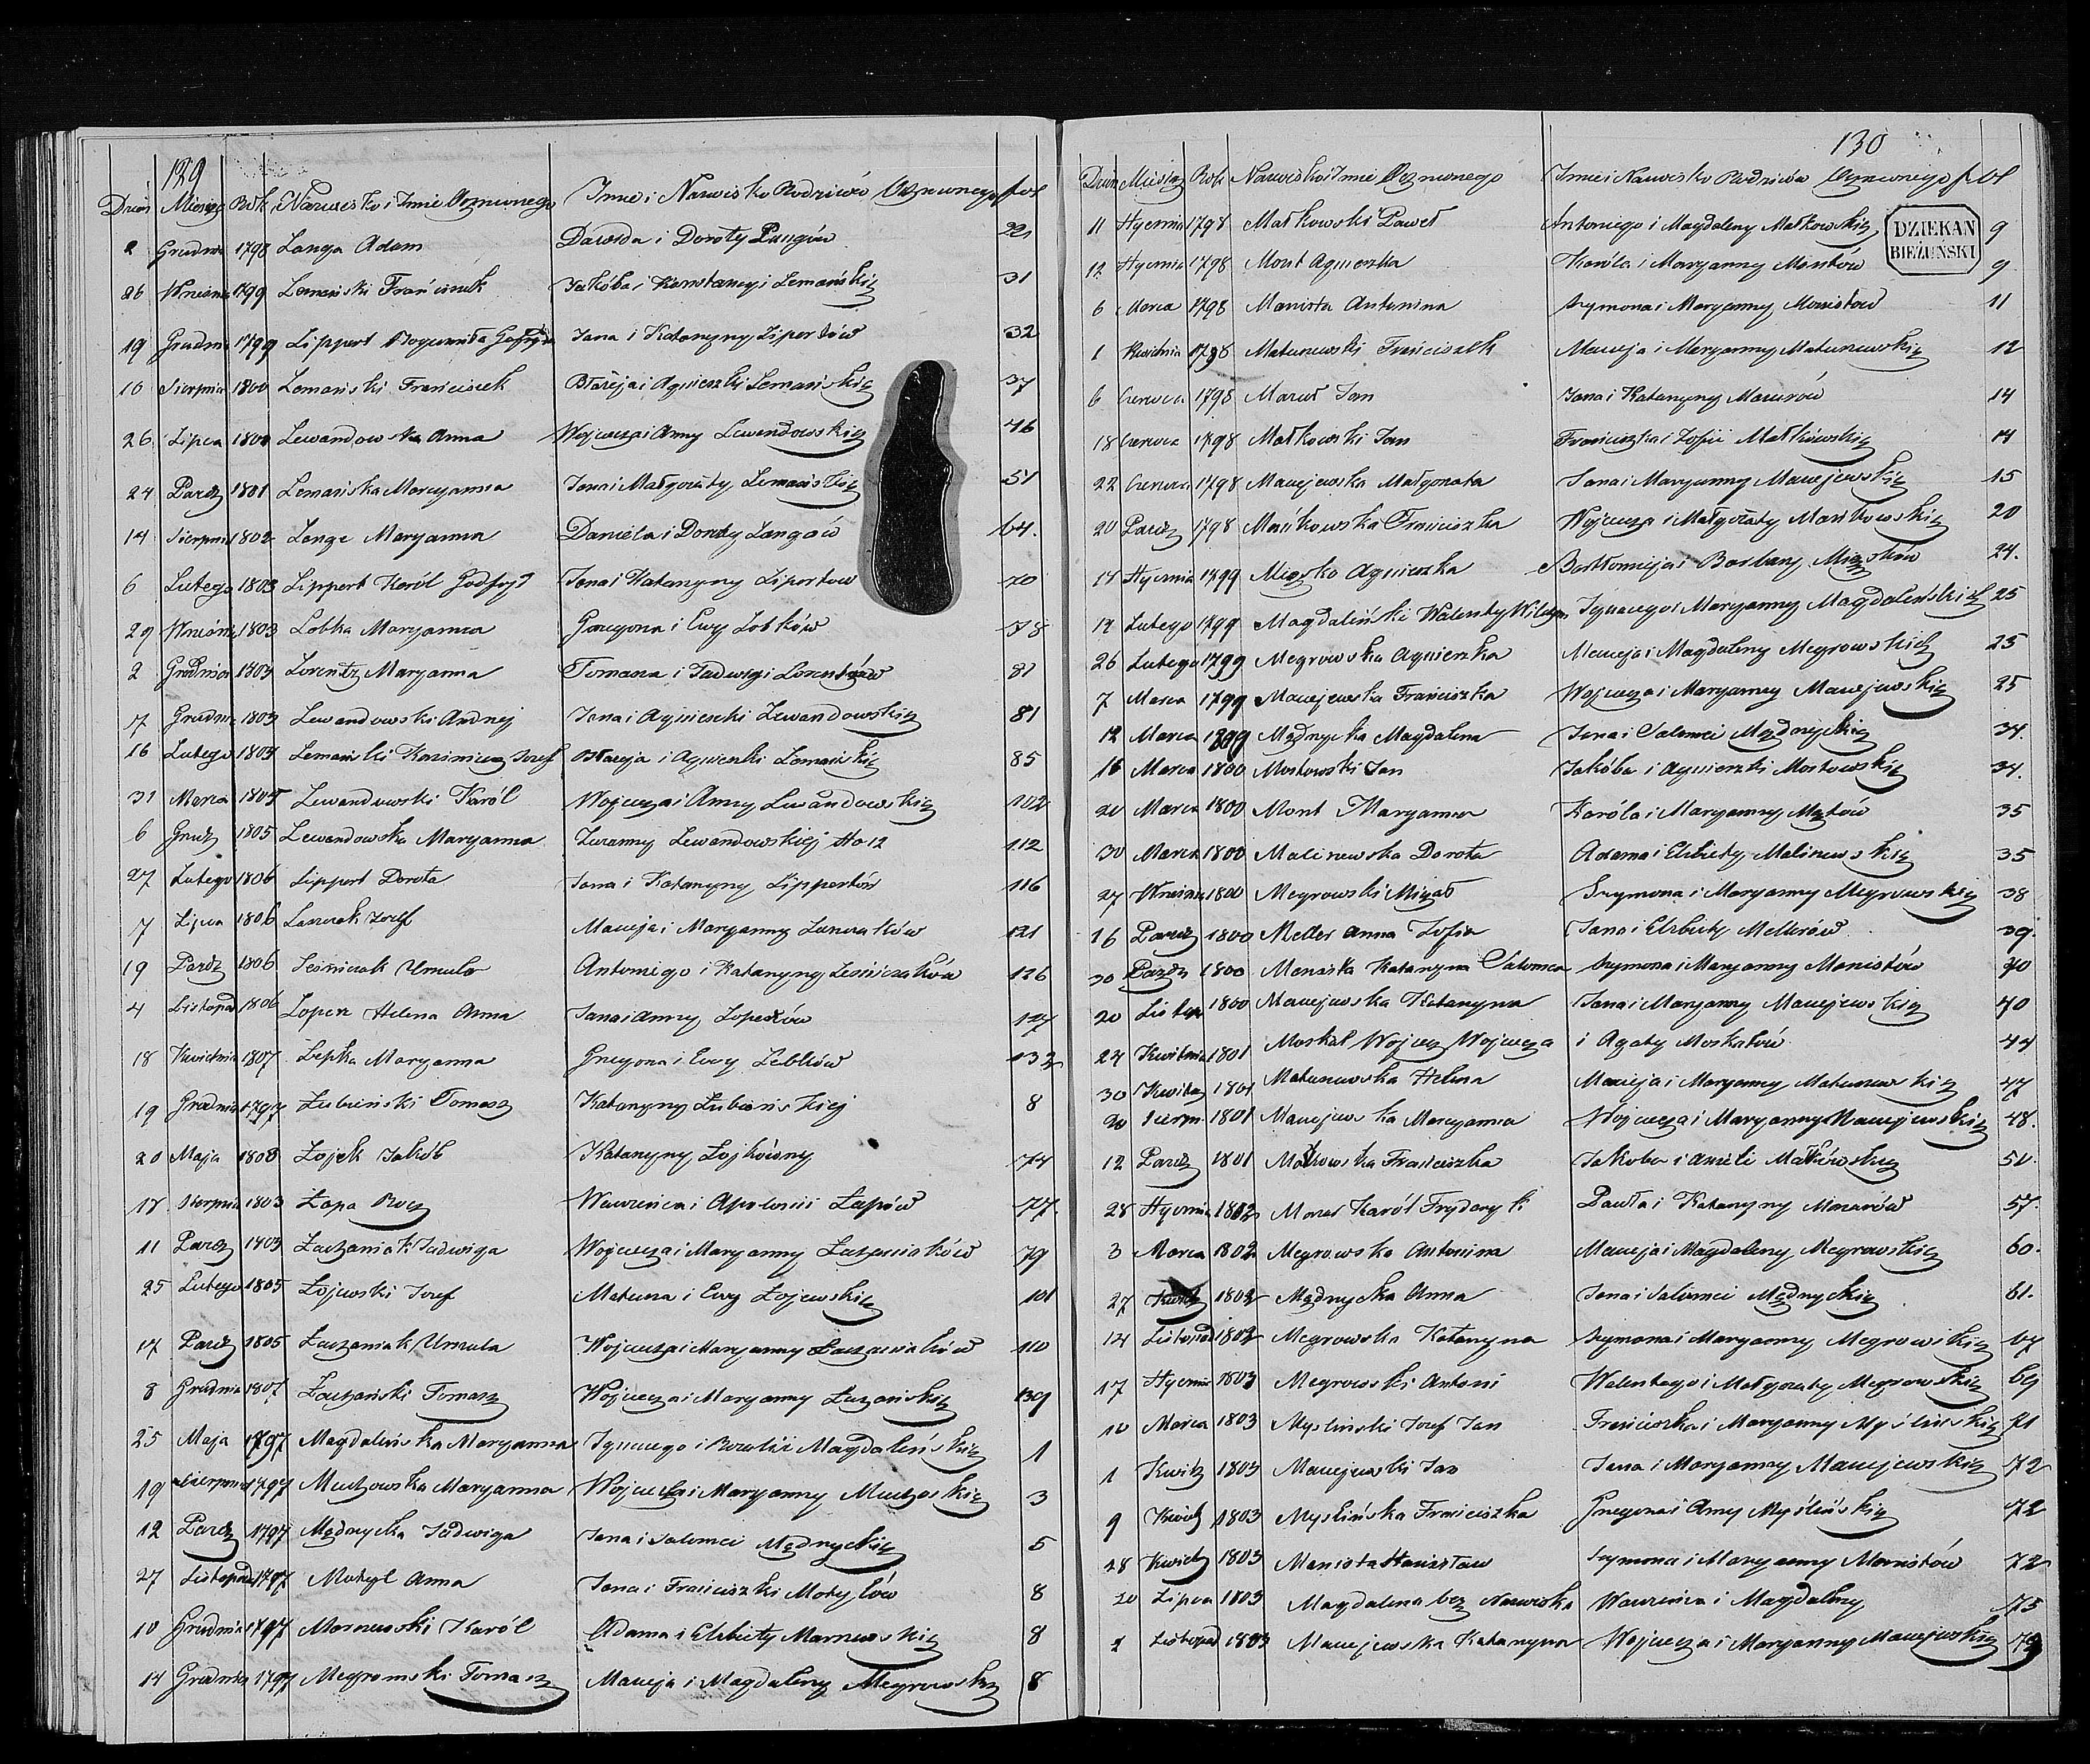 129
Dzień Miesiąc Rok Nazwisko i Imie Ochrzconego Imie i Nazwisko Rodziców fol
2 Grudnia 1798 Langa Adam Dawida i Doroty Langów 22
26 Wrześnie 1799 Lemański Franciszek Jakóba i Konstancyi Lemańskich 31
19 Grudnia 1799 Lippert Bogumiła Jana i Katarzyny Lipertów 32
10 Sierpnia 1800 Lemański Franciszek Błażeja i Agnieszki Lemańskich 37
26 Lipca Lewandowska Anna Wojciecha i Anny Lewandowskich 46
24 Pazdz 1801 Lemańska Maryanna Jana i Małgorzaty Lemańskich 51
14 Sierpnia 1802 Lange Maryanna Daniela i Doroty Langów 64.
6 Lutego 1803 Lippert Karól Godfryd Jana i Katarzyny Lipertów 70
29 Wrześnie 1803 Lobka Maryanna Grzegorza i Ewy Lobków 78
2 Grudnia 1803 Lorentz Maryanna Tomasza i Jadwigi Lorentzów 81
7 Grudnia 1803 Lewandowski Andrzej Jana i Agnieszki Lewandowskich 81
16 Lutego Lemański Kazimierz Józef Błażeja i Agnieszki Lemańskich 85
31 Marca 1805 Lewandowski Karól Wojciecha i Anny Lewandowskich 102
6 Grudz 1805 Lewandowska Maryanna Zuzanny Lewandowskiej No 12 112
27 Lutego 1806 Lippert Dorota Jana i Katarzyny Lippertów 116
7 Lipca 1806 Laszczak Józef Macieja i Maryanny 121
19 Pazdz 1806 Leśniczak Urszula Antoniego i Katarzyny Leśniczaków 126
4 Listopad 1806 Lopez Helena Anna Jana i Anny Lopezów 127
18 Kwietnia 1807 Lepka Maryanna Grzegorza i Ewy Lebków 132
19 Grudnia 1797 Łubieński Tomasz Katarzyny Łubieńskiej 8
20 Maja Łojek Jakób Katarzyny Łojkówny 74
18 Sierpnia 1803 Łapa Roch Wawrzeńca i Apolonii Łapów 77.
11 Pazdz 1803 Łachaniak Jadwiga Wojciecha i Maryanny Łachaniaków 79
25 Lutego 1805 Łojewski Józef Mateusza i Ewy Łojewskich 101
17 Pazdz 1805 Łachaniak Urszula Wojciecha i Maryanny Łachaniaków 110
8 Grudnia 1807 Łachański Tomasz Wojciecha i Maryanny Łachańskich 139
25 Maja 1797 Magdalińska Maryanna Ignacego i Rozalii Magdalińskich 1
19 Sierpnia 1797 Muchowska Maryanna Wojciecha i Maryanny 3
12 Pazdz 1797 Mądrzycka Jadwiga Jana i Salomei Mądrzyckich 5
27 Listopada 1797 Motyl Anna Jana i Franciszki Motylów 8
10 Grudnia 1797 Marnewski Karól Adama i Elzbiety Marnewskich 8
14 Grudnia 1797 Megrowski Tomasz Macieja i Magdaleny Megrowskich 8
130
Dzień Miesiąc Rok Nazwisko i Imie Imie i Nazwisko Rodziców fol
DZIEKAN
BIEŻUŃSKI
11 Stycznia 1798 Małkowski Paweł Antoniego i Magdaleny Małkowskich 9
12 Stycznia 1798 Mont Agnieszka Karóla i Maryanny Montów 9
6 Marca 1798 Manista Antonina Szymona i Maryanny Manistów 11
1 Kwietnia 1798 Matuszewski Franciszek Macieja i Maryanny Matuszewskich 12
6 Czerwca 1798 Mazur Jan Jana i Katarzyny Mazurów 14
18 Czerwca 1798 Małkowski Jan Franciszka i Zofii Małkowskich 14
22 Czerwca 1798 Maciejewska Małgorzata Jana i Maryanny Maciejewskich 15
20 Pazdz 1798 Mańkowska Franciszka Wojciecha i Małgorzaty Mańkowskich 20
14 Stycznia 1799 Mięsko Agnieszka Bartłomieja i Barbary Mięsków 24.
14 Lutego 1799 Magdaliński Walenty Ignacego i Maryanny Magdalińskich 25
26 Lutego 1799 Megrowska Agnieszka Macieja i Magdaleny Megrowskich 25
7 Marca 1799 Maciejewska Franciszka Wojciecha i Maryanny Maciejewskich 25
12 Marca Mądrzycka Magdalena Jana i Salomei Mądrzyckich 34.
16 Marca 1800 Mostowski Jan Jakóba i Agnieszki Mostowskich 34.
20 Marca 1800 Mont Maryanna Karóla i Maryanny Mątów 35
30 Marca 1800 Malinewska Dorota Adama i Elzbiety Malinewskich 35
27 Wrześnie 1800 Megrowski Michał Szymona i Maryanny Megrowskich 38
16 Pazdz 1800 Meller Anna Zofia Jana i Elzbiety Mellerów 39.
30 Pazdz 1800 Katarzyna Salomea Szymona i Maryanny Manistów 40
20 Listop 1800 Maciejewska Katarzyna Jana i Maryanny Maciejewskich 40
24 Kwietnia 1801 Moskal Wojciech Wojciecha i Agaty Moskalów 44
30 Kwietn 1801 Matuszewska Helena Macieja i Maryanny Matuszewskich 47
20 Sierpn 1801 Maciejewska Maryanna Wojciecha i Maryanny Maciejewskich 48.
12 Pazdz 1801 Małkowska Franciszka Jakoba i Anieli Małkowskich 50.
28 Stycznia 1802 Mazur Karól Fryderyk Pawła i Katarzyny Mazurów 57.
3 Marca 1802 Megrowska Antonina Macieja i Magdaleny Megrowskich 60.
27 1802 Mądrzycka Anna Jana i Salomei Mądrzyckich 61.
14 Listopad 1802 Megrowska Katarzyna Szymona i Maryanny Megrowskich 67
17 Stycznia 1803 Megrowski Antoni Walentego i Małgorzaty Megrowskich 69
10 Marca 1803 Mysliński Józef Jan Franciszka i Maryanny Myślińskich 71
1 Kwietn 1803 Maciejewski Jan Jana i Maryanny Maciejewskich 72
9 Kwietn 1803 Myslińska Franciszka Grzegorza i Anny Myślińskich 72
28 Kwietn 1803 Manista Stanisław Szymona i Maryanny Manistów 72
20 Lipca 1803 Magdalena bez Nazwiska Wawrzeńca i Magdaleny 75
2 Listopad 1803 Maciejewska Katarzyna Wojciecha i Maryanny Maciejewskich 79